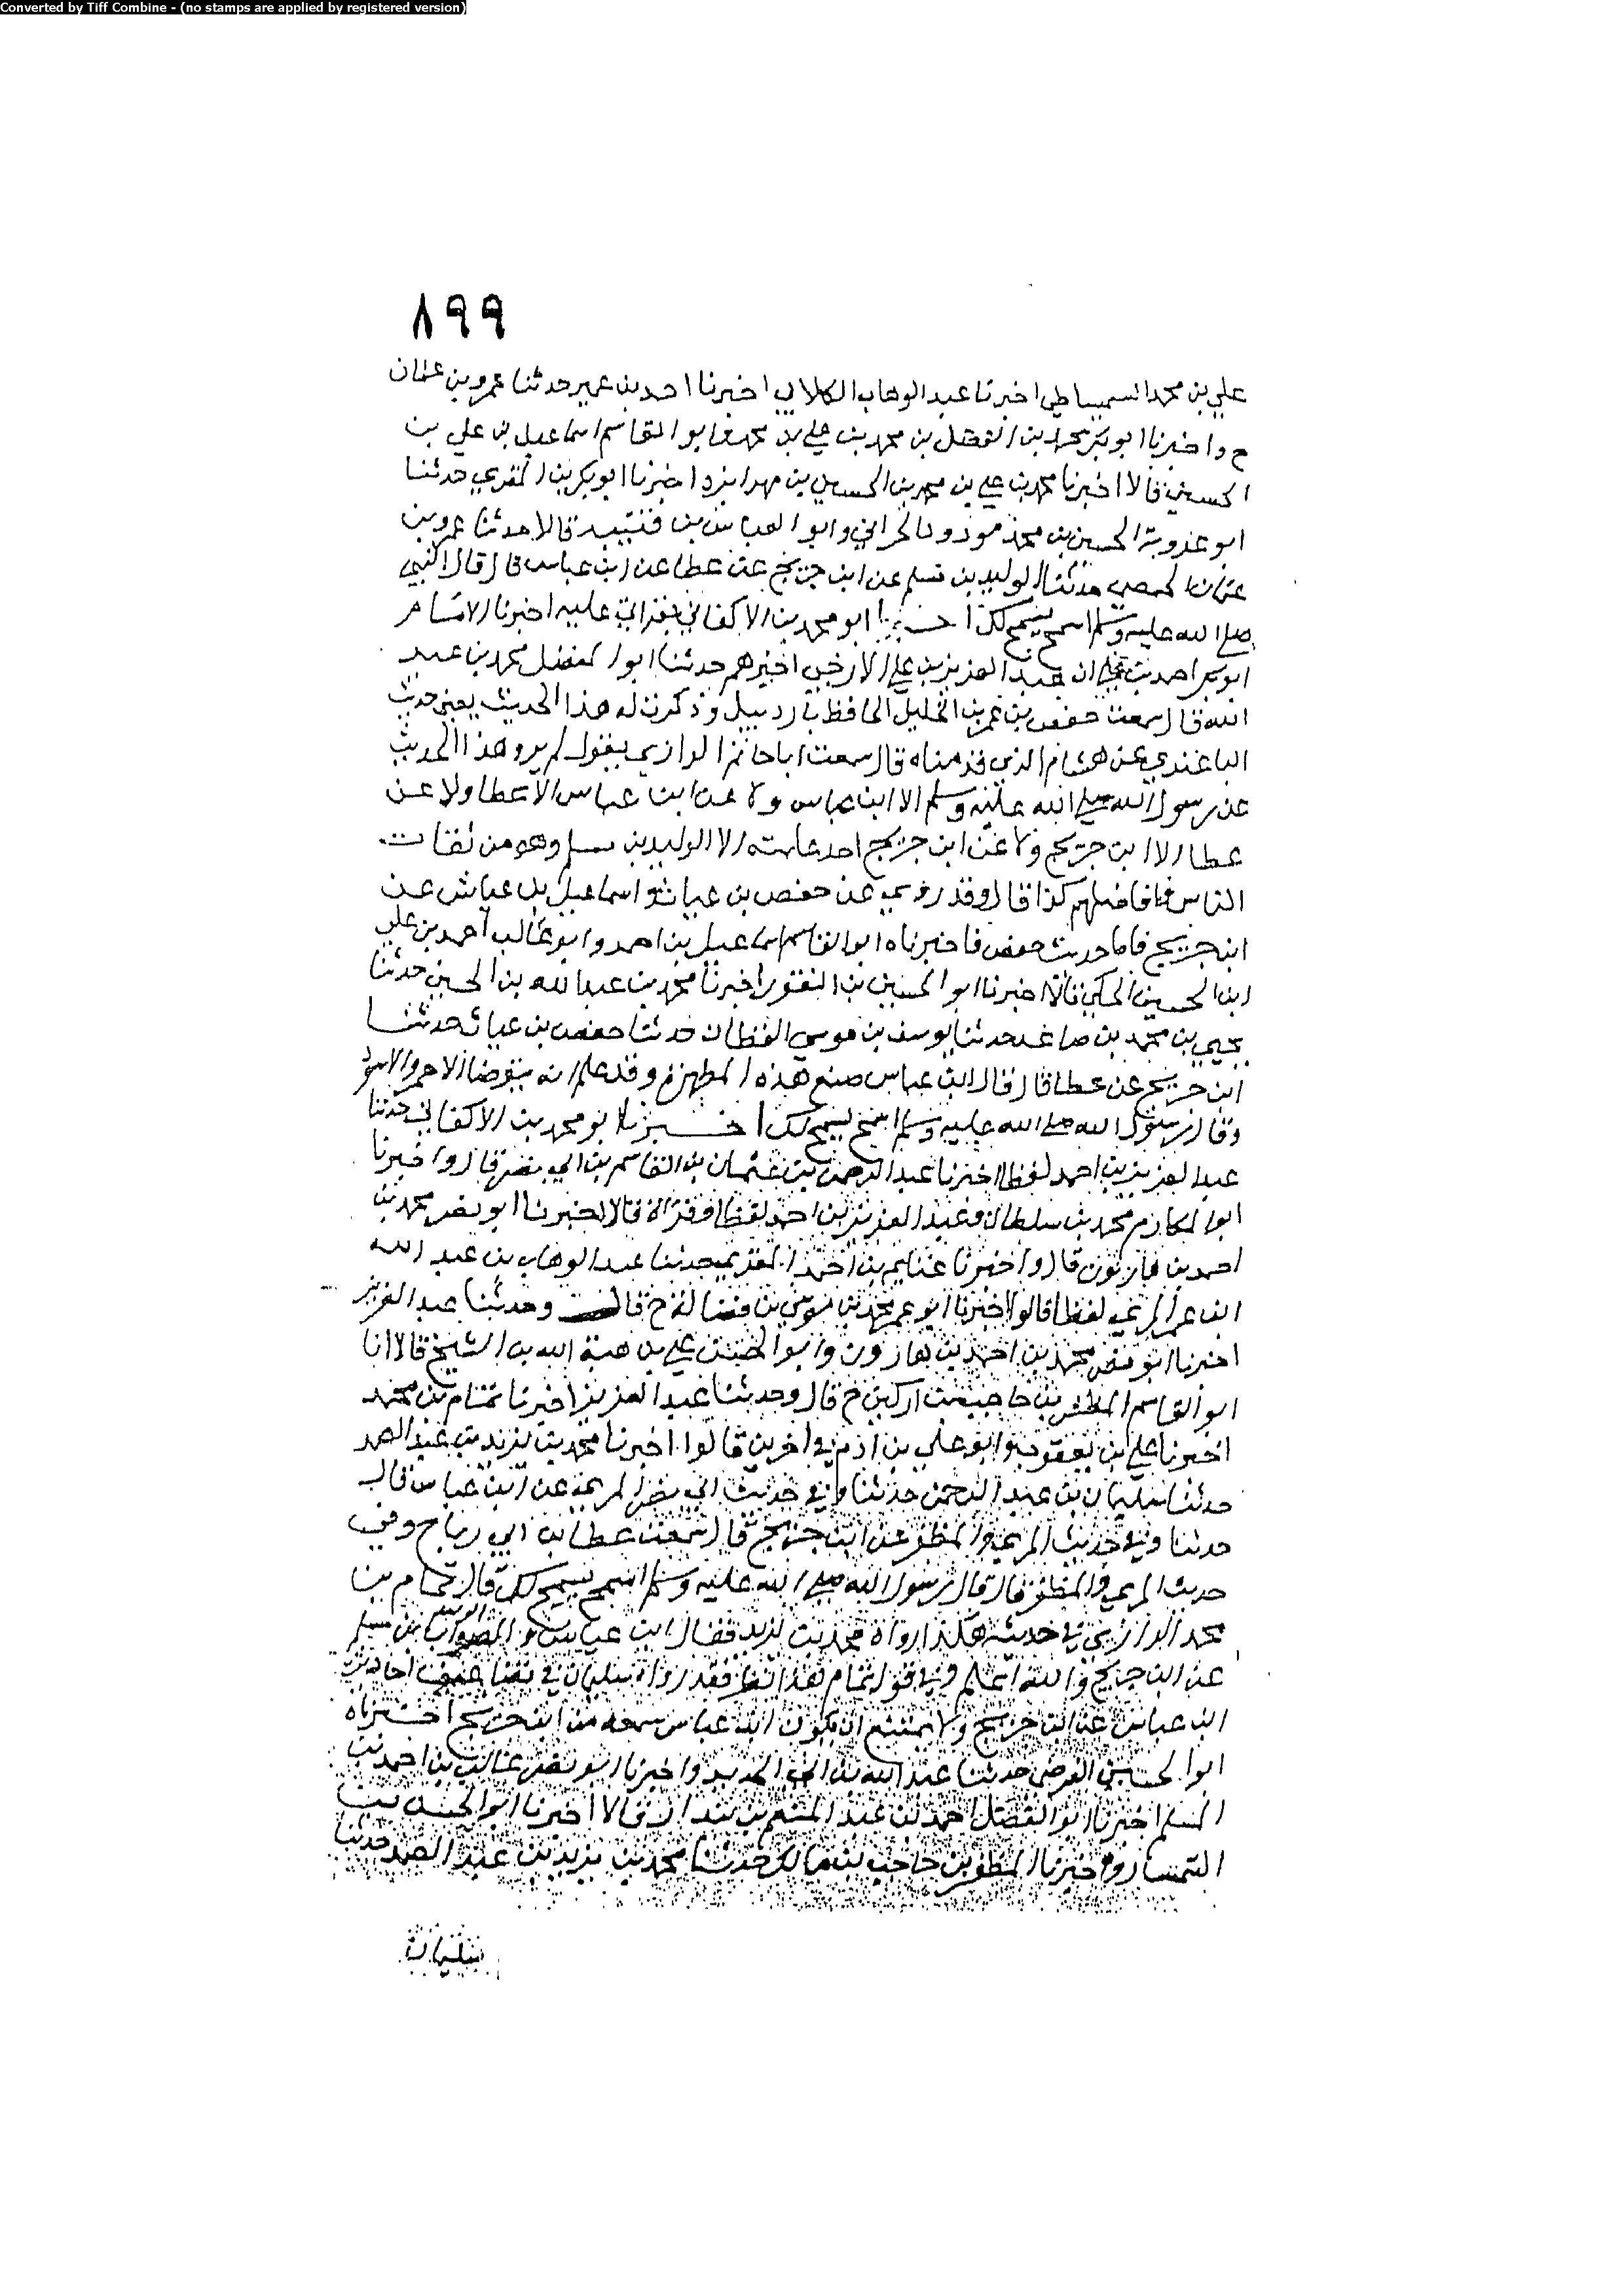 Converted by Tiff Combine - (no stamps are applied by registered version)
٨٩٩
علي بن محمد السميساطي اخبرنا عبد الوهاب الكلابي اخبرنا احمد بن عمير حدثنا عمرو بن عثمان
ح واخبرنا ابو بكر محمد بن الفضل بن محمد بن علي بن محمد وابو القاسم اسماعيل بن علي بن
الحسين قالا اخبرنا محمد بن علي بن محمد بن الحسين بن مهرابزد اخبرنا ابو بكر بن المقري حدثنا
ابو عروبة الحسين بن محمد مودود الحراني وابو العباس بن قتيبة قالا حدثنا عمرو بن
عثمان الحمصي حدثنا الوليد بن مسلم عن ابن جريج عن عطا عن ابن عباس قال قال النبي
صلى الله عليه وسلم اسمح يسمح لك اخبرنا ابو محمد بن الاكفاني بقراتي عليه اخبرنا الامام
ابو بكر احمد بن علي ان عبد العزيز بن علي الازجي اخبرهم حدثنا ابو المفضل محمد بن عبد
الله قال سمعت حفص بن عمر بن الخليل الحافظ باردبيل وذكرت له هذا الحديث يعني حديث
الباغندي عن هشام الذي قدمناه قال سمعت اباحاتم الرازي يقول لم يرو هذا الحديث
عن رسول الله صلى الله عليه وسلم الا ابن عباس ولا عن ابن عباس الا عطا ولا عن
عطا الا ابن جريج ولا عن ابن جريج احد علمته الا الوليد بن مسلم وهو من ثقات
الناس وافاضلهم كذا قال وقد روي عن حفص بن غياث واسماعيل بن عياش عن
ابن جريج فاما حديث حفص فاخبرناه ابو القاسم اسماعيل بن احمد وابو غالب احمد بن علي
ابن الحسين المكي قالا اخبرنا ابو الحسين بن النقور اخبرنا محمد بن عبد الله بن الحسين حدثنا
يحيى بن محمد بن صاعد حدثنا يوسف بن موسى القطان حدثنا حفص بن غياث حدثنا
ابن جريج عن عطا قال قال ابن عباس صنع هذه المطهرة وقد علم انه يتوضا الاحمر والاسود
وقال رسول الله صلى الله عليه وسلم اسمح يسمح لك اخبرنا ابو محمد بن الاكفاني حدثنا
عبد العزيز بن احمد لفظا اخبرنا عبد الرحمن بن عثمان بن القاسم بن ابي نصر قال واخبرنا
ابو المكارم محمد بن سلطان وعبد العزيز بن احمد لفظا وقراة قالا اخبرنا ابو نصر محمد بن
احمد بن هارون قال واخبرنا غنايم بن احمد المقري حدثنا عبد الوهاب بن عبد الله
ابن عمر المري لفظا قالوا اخبرنا ابو عمر محمد بن موسى بن فضالة ح قال وحدثنا عبد العزيز
اخبرنا ابو نصر محمد بن احمد بن هارون وابو الحسن علي بن هبة الله بن الشيخ قالا انا
ابو القاسم المظفر بن حاجب بن اركين ح قال وحدثنا عبد العزيز اخبرنا تمام بن محمد
اخبرنا علي بن يعقوب وابو علي بن ادم في اخرين قالوا اخبرنا محمد بن يزيد بن عبد الصمد
حدثنا سليمان بن عبد الرحمن حدثنا وفي حديث ابي نصر المري عن ابن عباس قال
حدثنا وفي حديث المري والمظفر عن ابن جريج قال سمعت عطا بن ابي رباح وفي
حديث المري والمظفر قال قال رسول الله صلى الله عليه وسلم اسمح يسمح لك قال تمام بن
محمد الرازي في حديثه هكذا رواه محمد بن يزيد فقال ابن عباس والصواب الوليد بن مسلم
عن ابن جريج والله اعلم وفي قول تمام هذا نظر فقد رواه سليمان في تضاعيف احاديث
ابن عباس عن ابن جريج ولا يمتنع ان يكون ابن عباس سمعه من ابن جريج اخبرناه
ابو الحسن الفرضي حدثنا عبد الله بن ابي الحديد واخبرنا ابو نصر غالب بن احمد بن
المسلم اخبرنا ابو الفضل احمد بن عبد المنعم بن بندار قالا اخبرنا ابو الحسن بن
السمسار واخبرنا المظفر بن حاجب بن مالك حدثنا محمد بن يزيد بن عبد الصمد حدثنا
سليمان